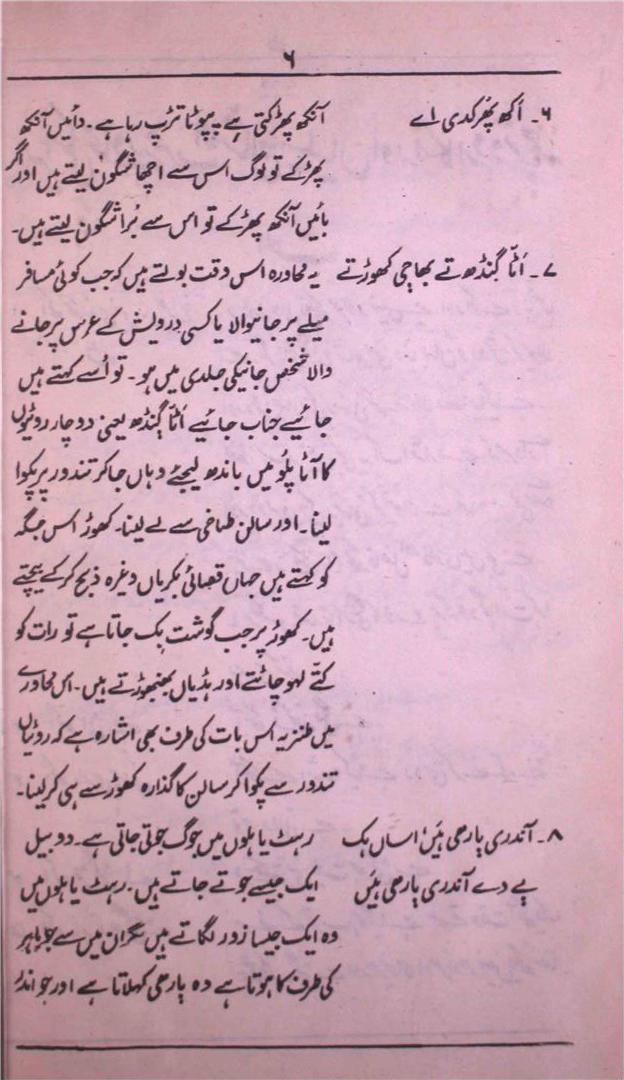 ۶
۶۔ اَکھ پھُرکدی اے آنکھ پھڑکتی ہے پپوٹا تڑپ رہا ہے۔ دائیں آنکھ
پھڑکے تو لوگ اس سے اچھا شگون لیتے ہیں اور اگر
بائیں آنکھ پھڑکے تو اس سے بُرا شگون لیتے ہیں۔
۷۔ اٹّا گنڈھ تے بھاجی کھوڑتے یہ محاورہ اس وقت بولتے ہیں کہ جب کوئی مسافر
میلے پر جانیوالا یا کسی درویش کے عرس پر جانے
والا شخص جانیکی جلدی میں ہو۔ تو اُسے کہتے ہیں
جائیے جناب جائیے اٹّا گنڈھ یعنی دو چار روٹیوں
کا آٹا پلو میں باندھ لیجئے وہاں جا کر تندور پر پکوا
لینا۔ اور سالن طباخی سے لے لینا۔ کھوڑ اس جگہ
کو کہتے ہیں جہاں قصائی بکریاں وغیرہ ذبح کر کے بیچتے
ہیں۔ کھوڑ پر جب گوشت بِک جاتا ہے تو رات کو
کتّے لہو چاٹتے اور ہڈیاں بھنبھوڑتے ہیں۔ اس محاورے
میں طنزیہ اس بات کی طرف بھی اشارہ ہے کہ روٹیاں
تندور سے پکوا کر سالن کا گذارہ کھوڑ سے ہی کر لینا۔
۸۔ آندری پارھی ہیَں اساں ہک رہٹ یا ہلوں میں جوگ جوتی جاتی ہے۔ دو بیل
بے دے آندری پارھی ہیَں ایک جیسے جوتے جاتے ہیں۔ رہٹ یا ہلوں میں
وہ ایک جیسا زور لگاتے ہیں مگر ان میں سے جو باہر
کی طرف کا ہوتا ہے وہ پارھی کہلاتا ہے اور جو اندر